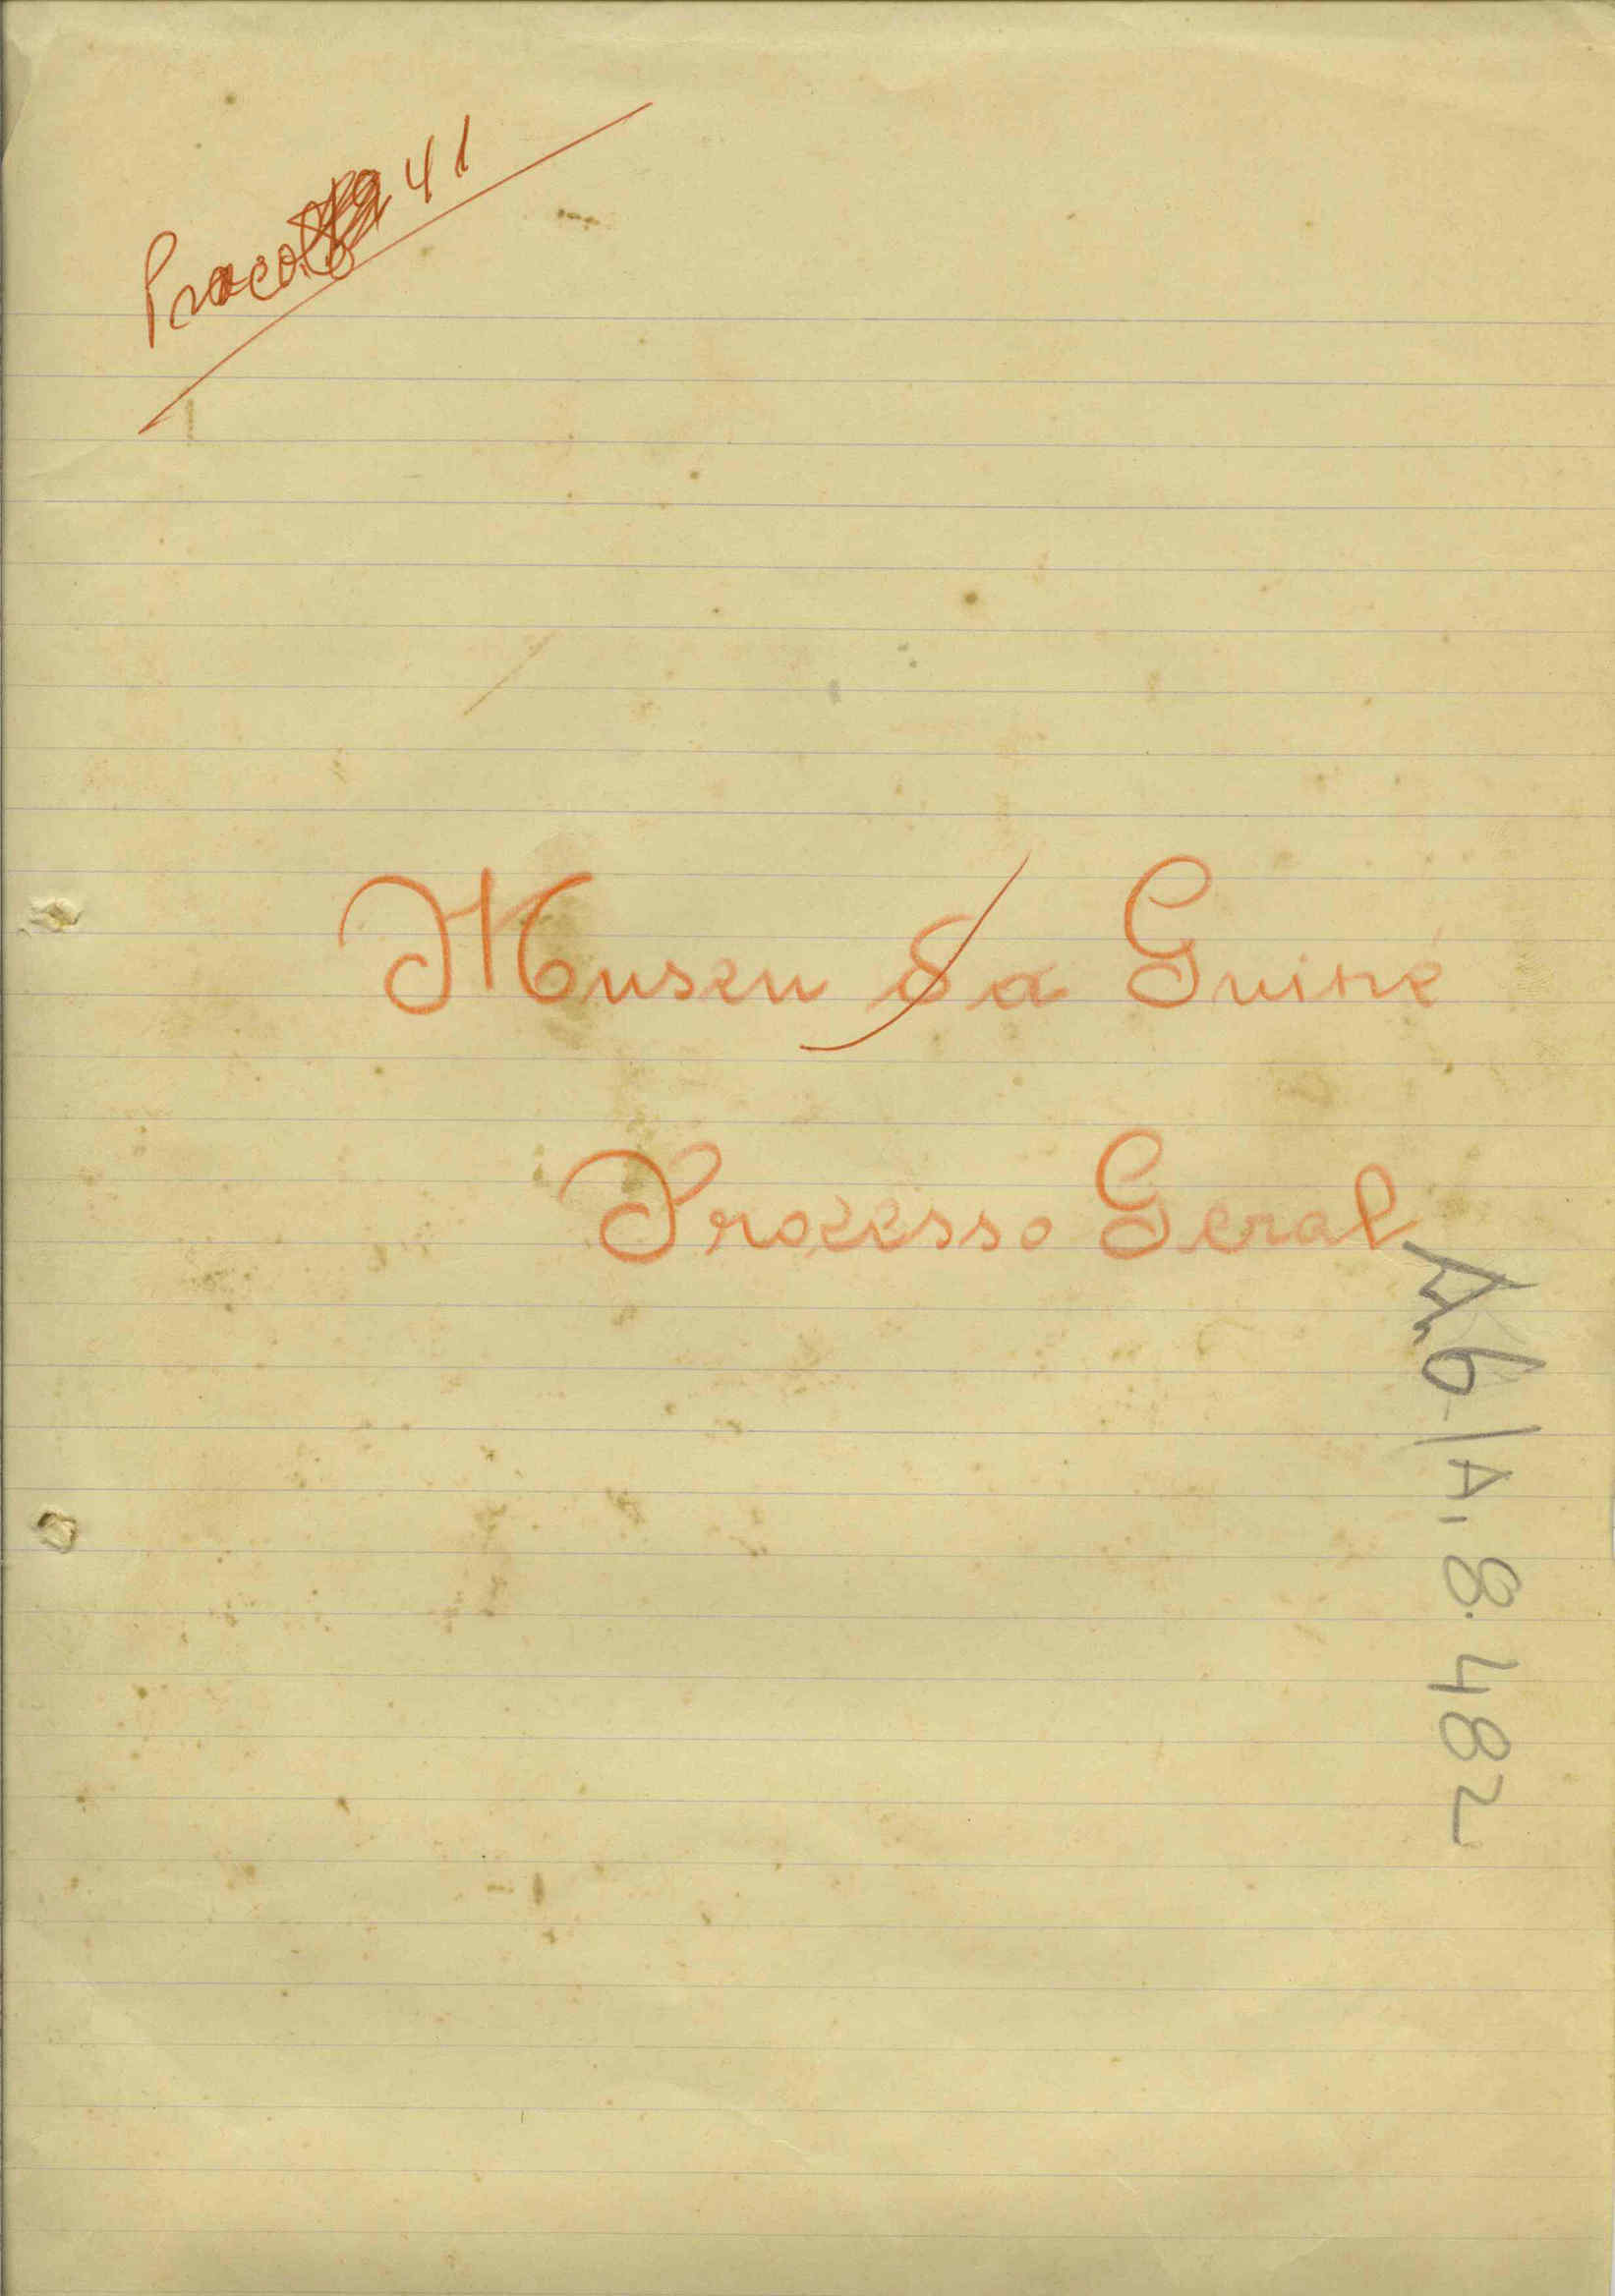 Proc. 41
Museu da Guiné
Processo Geral
6/A, 8. 482